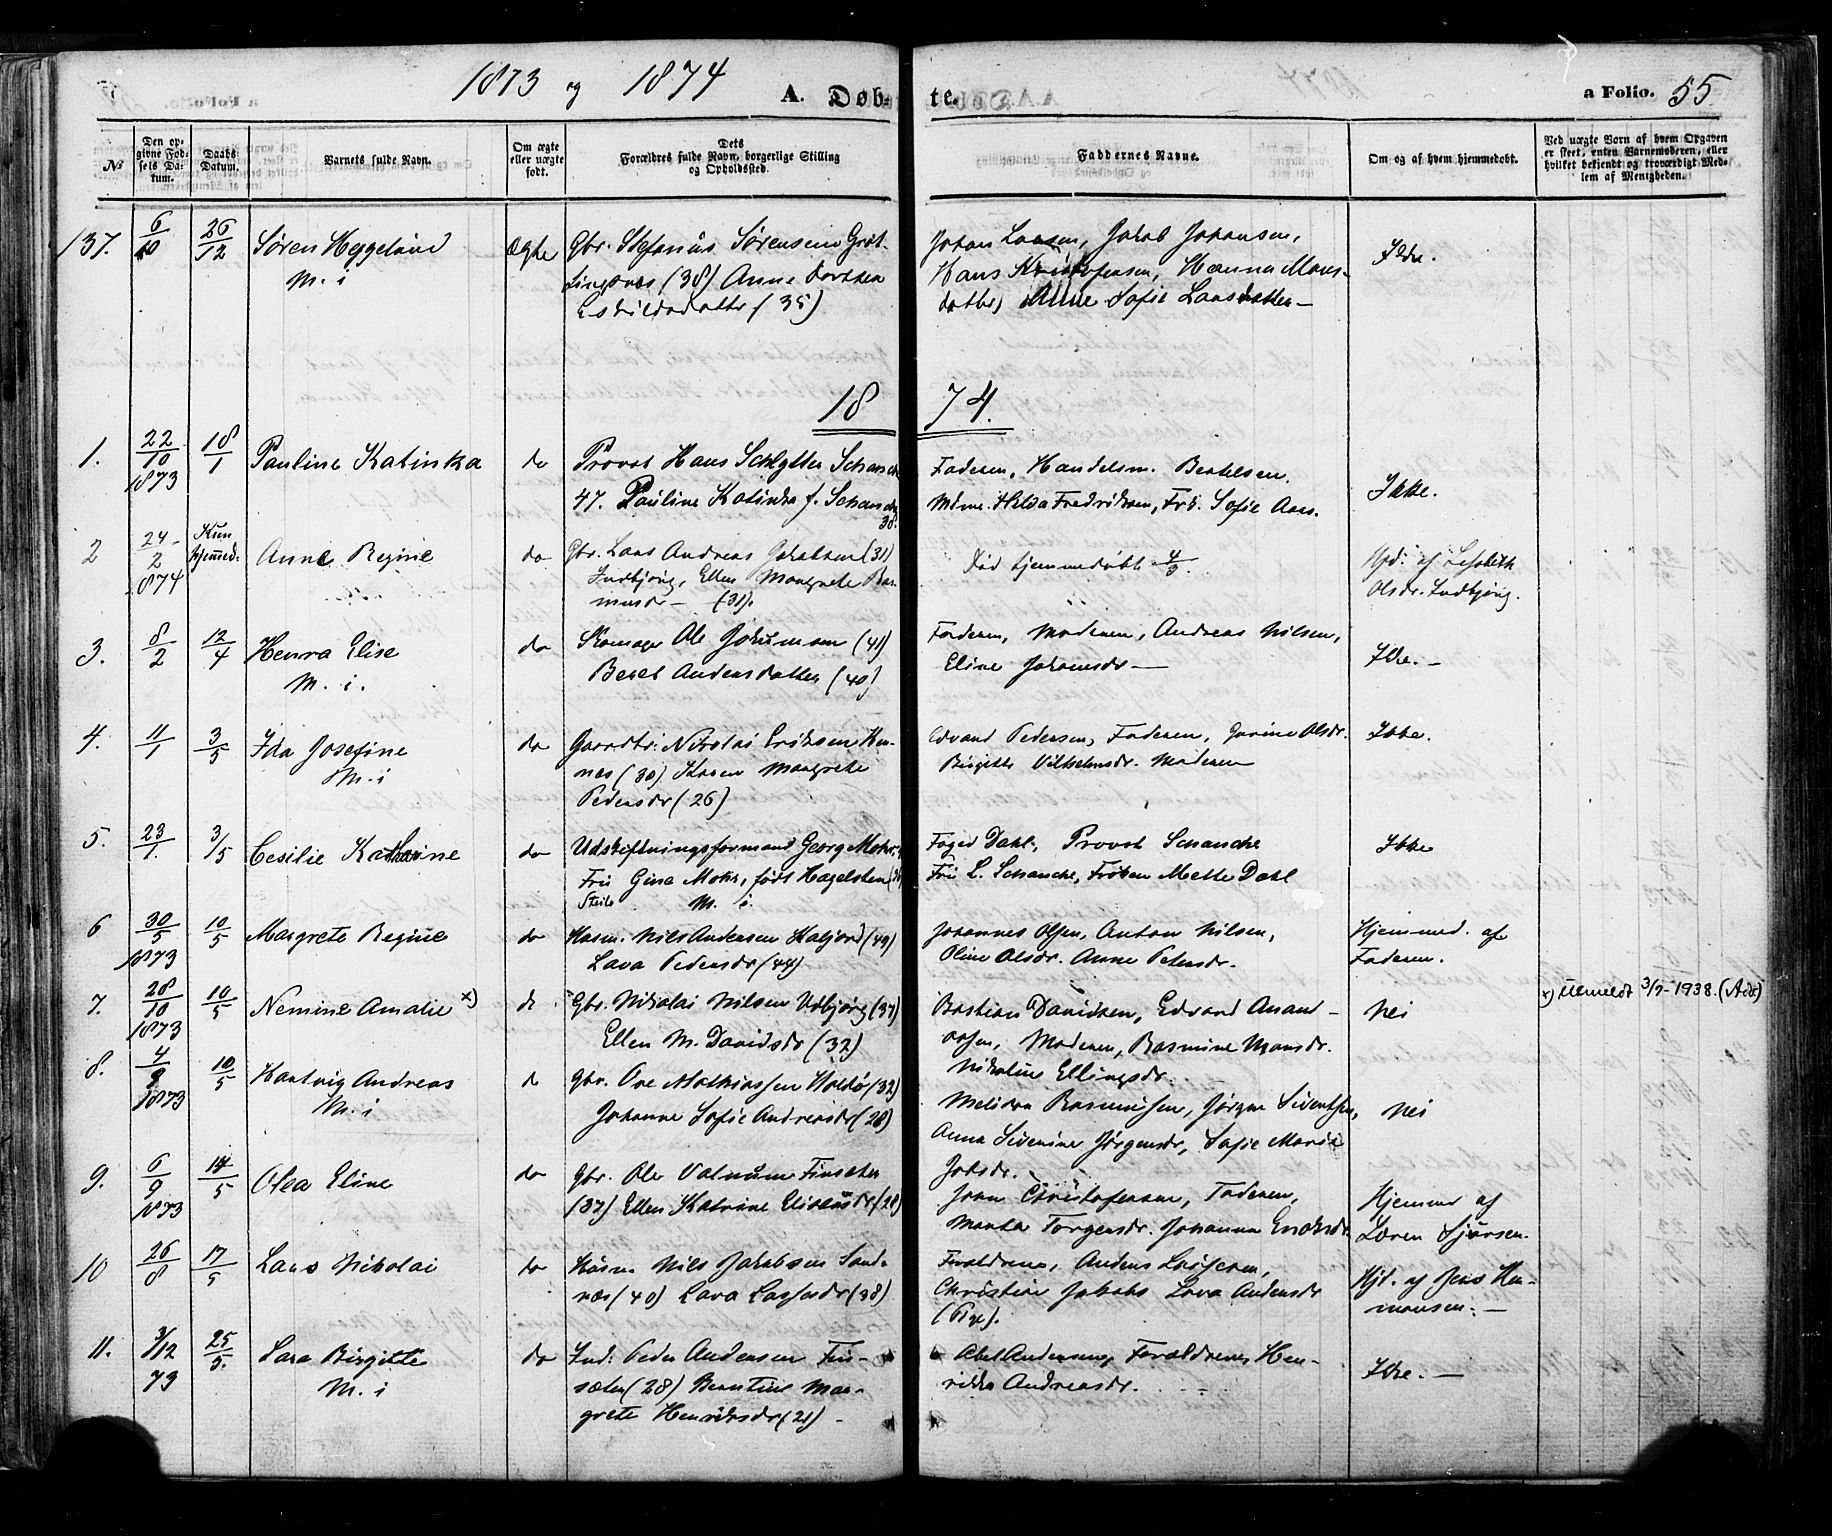 1873 og 1874 A. Døb- te. a Folio. 55
No
Den op-
givne Fød-
sels Da-
tum.
Daabs-
Datum.
Barnets fulde Navn.
Om ægte
eller uægte
født.
Dets
Forældres fulde Navn, borgerlige Stilling
og Opholdssted.
Faddernes Navne.
Om og af hvem hjemmedøbt.
Ved uægte Børn af hvem Opgaven
er skeet, enten Barnemoderen, eller
hvilket bekjendt og troværdigt Med-
lem af Menigheden.
137. 6/10 26/12 Søren Heggelund Ægte Gbr. Stefanus Sørensen Grøt-
M. i tingsnæs (38) Anne Dorthea
Eskildsdatter (35)
Johan Larsen, Jakob Johansen, Ikke.
Hans Kristofersen, Hanna Mons-
datter, Anne Sofie Larsdatter —
18 74.
1. 22/10 1873 18/1 Pauline Katinka do Provst Hans Schlytter Schanche
47. Pauline Katinka f. Schanche
38.
Faderen, Handelsm. Bertelsen.
Mdme. Hilda Fredriksen, Frk. Sofie Aas. Ikke.
2 24/2 1874 Kun
hjemmed: Anne Regine do Gbr. Lars Andreas Jakobsen (31)
Indbjörg, Ellen Margrete Ras-
musdr — (31).
Död hjemmedöbt 4/3. Hjd: af Lisabeth
Olsdr. Indbjörg.
3. 8/2 12/4 Henra Elise do Skomager Ole Johnsen (41)
M. i. Beret Andersdatter (40)
Faderen, Moderen, Andreas Nilsen, Ikke. —
Eline Johansdr —
4. 11/1 3/5 Ida Josefine do Gaardbr: Nikolai Eriksen Hen-
M. i næs (30) Karen Margrete
Pedersdr (26)
Edvard Pedersen, Faderen, Gurine Olsdr. Ikke.
Birgitte Vilhelmsdr. Moderen
5. 23/1. 3/5 Cesilie Katharine do Udskiftningsformand Georg Mohr,
Fru Gina Mohr, født Hagelsteen
M. i.
Foged Dahl, Provst Schanche Ikke
Fru L. Schanche, Frøken Mette Dahl
6 30/5 1873 10/5 Margrete Regine do Husm. Nils Andersen Kaljord (49)
Lava Pedersdr (44)
Johannes Olsen, Anton Nilsen, Hjemmed. af
Oline Olsdr. Anne Petersdr. Faderen.
7. 28/10 1873 10/5 Nemine Amalie x) do Gbr. Nikolai Nilsen Udbjörg (37)
Ellen M. Davidsdr (32)
Bastian Davidsen, Edvard Anand- Nei x) Utmeldt 3/7-1938. (Adv)
osen, Moderen, Rasmine Monsdr.
Nikoline Ellingsdr.
8. 4/9 1873 10/5 Hartvig Andreas do Gbr. Ove Mathiassen Holdö (32)
M. i Johanne Sofie Andreasdr (28)
Melidon Rasmussen, Jörgen Sivertsen, Nei
Anna Severine Jörgensdr, Sofie Marie
Jakobsdr.
9. 6/9 1873 14/5 Olea Eline do Gbr. Ole Valnum Finsæter
(37) Ellen Katrine Eliseusdr (28)
Joan Christofersen, Faderen, Hjemmed af
Marta Torgersdr. Johanna Eriksdr. Søren Sjursen.
10 26/8 17/5 Lars Nikolai do Husm. Nils Jakobsen Sand-
næs (40) Lava Larsensdr (38)
Forældrene, Anders Larsen, Hjd. af Jens Her-
Christian Jakobs Lava Andersdr mansen. —
(Pige).
11. 3/12 73 25/5. Lara Birgitte do Ind: Peder Andersen Fin-
M. i sæter (28) Berntine Mar-
grete Henriksdr (21) —
Abel Andersen, Forældrene, Hen- Ikke. —
rikka Andreasdr.